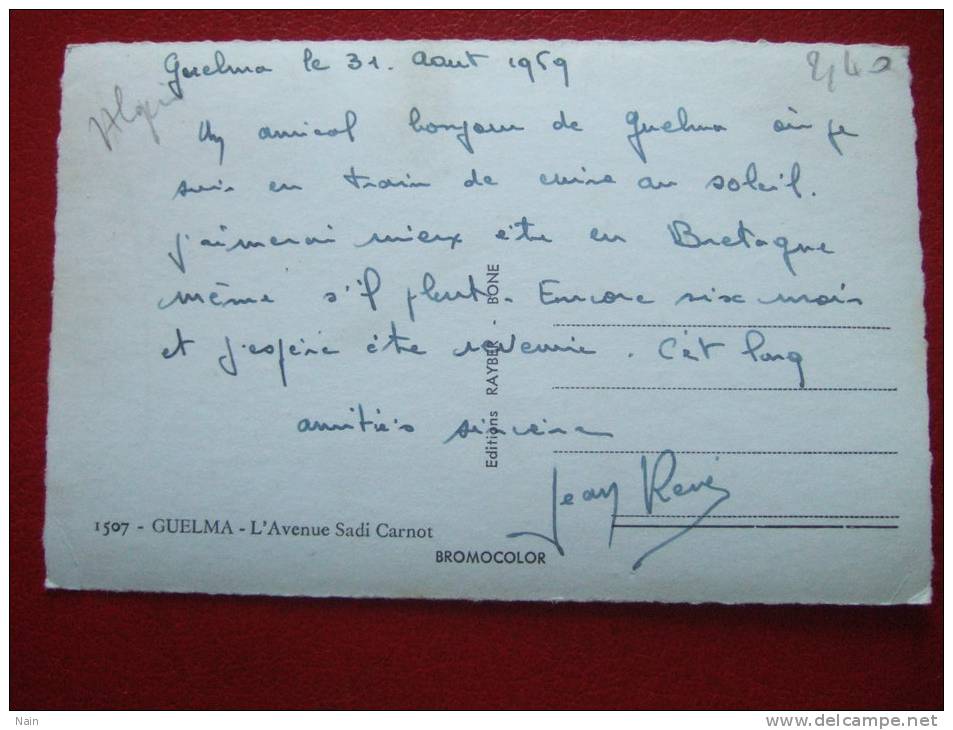 Guelma le 31. Aout 1959
2,40
Algérie
Un amical bonjour de Guelma où je
suis en train de cuire au soleil.
J'aimerai mieux être en Bretagne
même s'il pleut. Encore six mois
et j'espère être revenu. C'est long
amitiés sincères
Jean René
Editions RAYBER - BONE
1507 - GUELMA - L'Avenue Sadi Carnot
BROMOCOLOR
Nain
www.delcampe.net